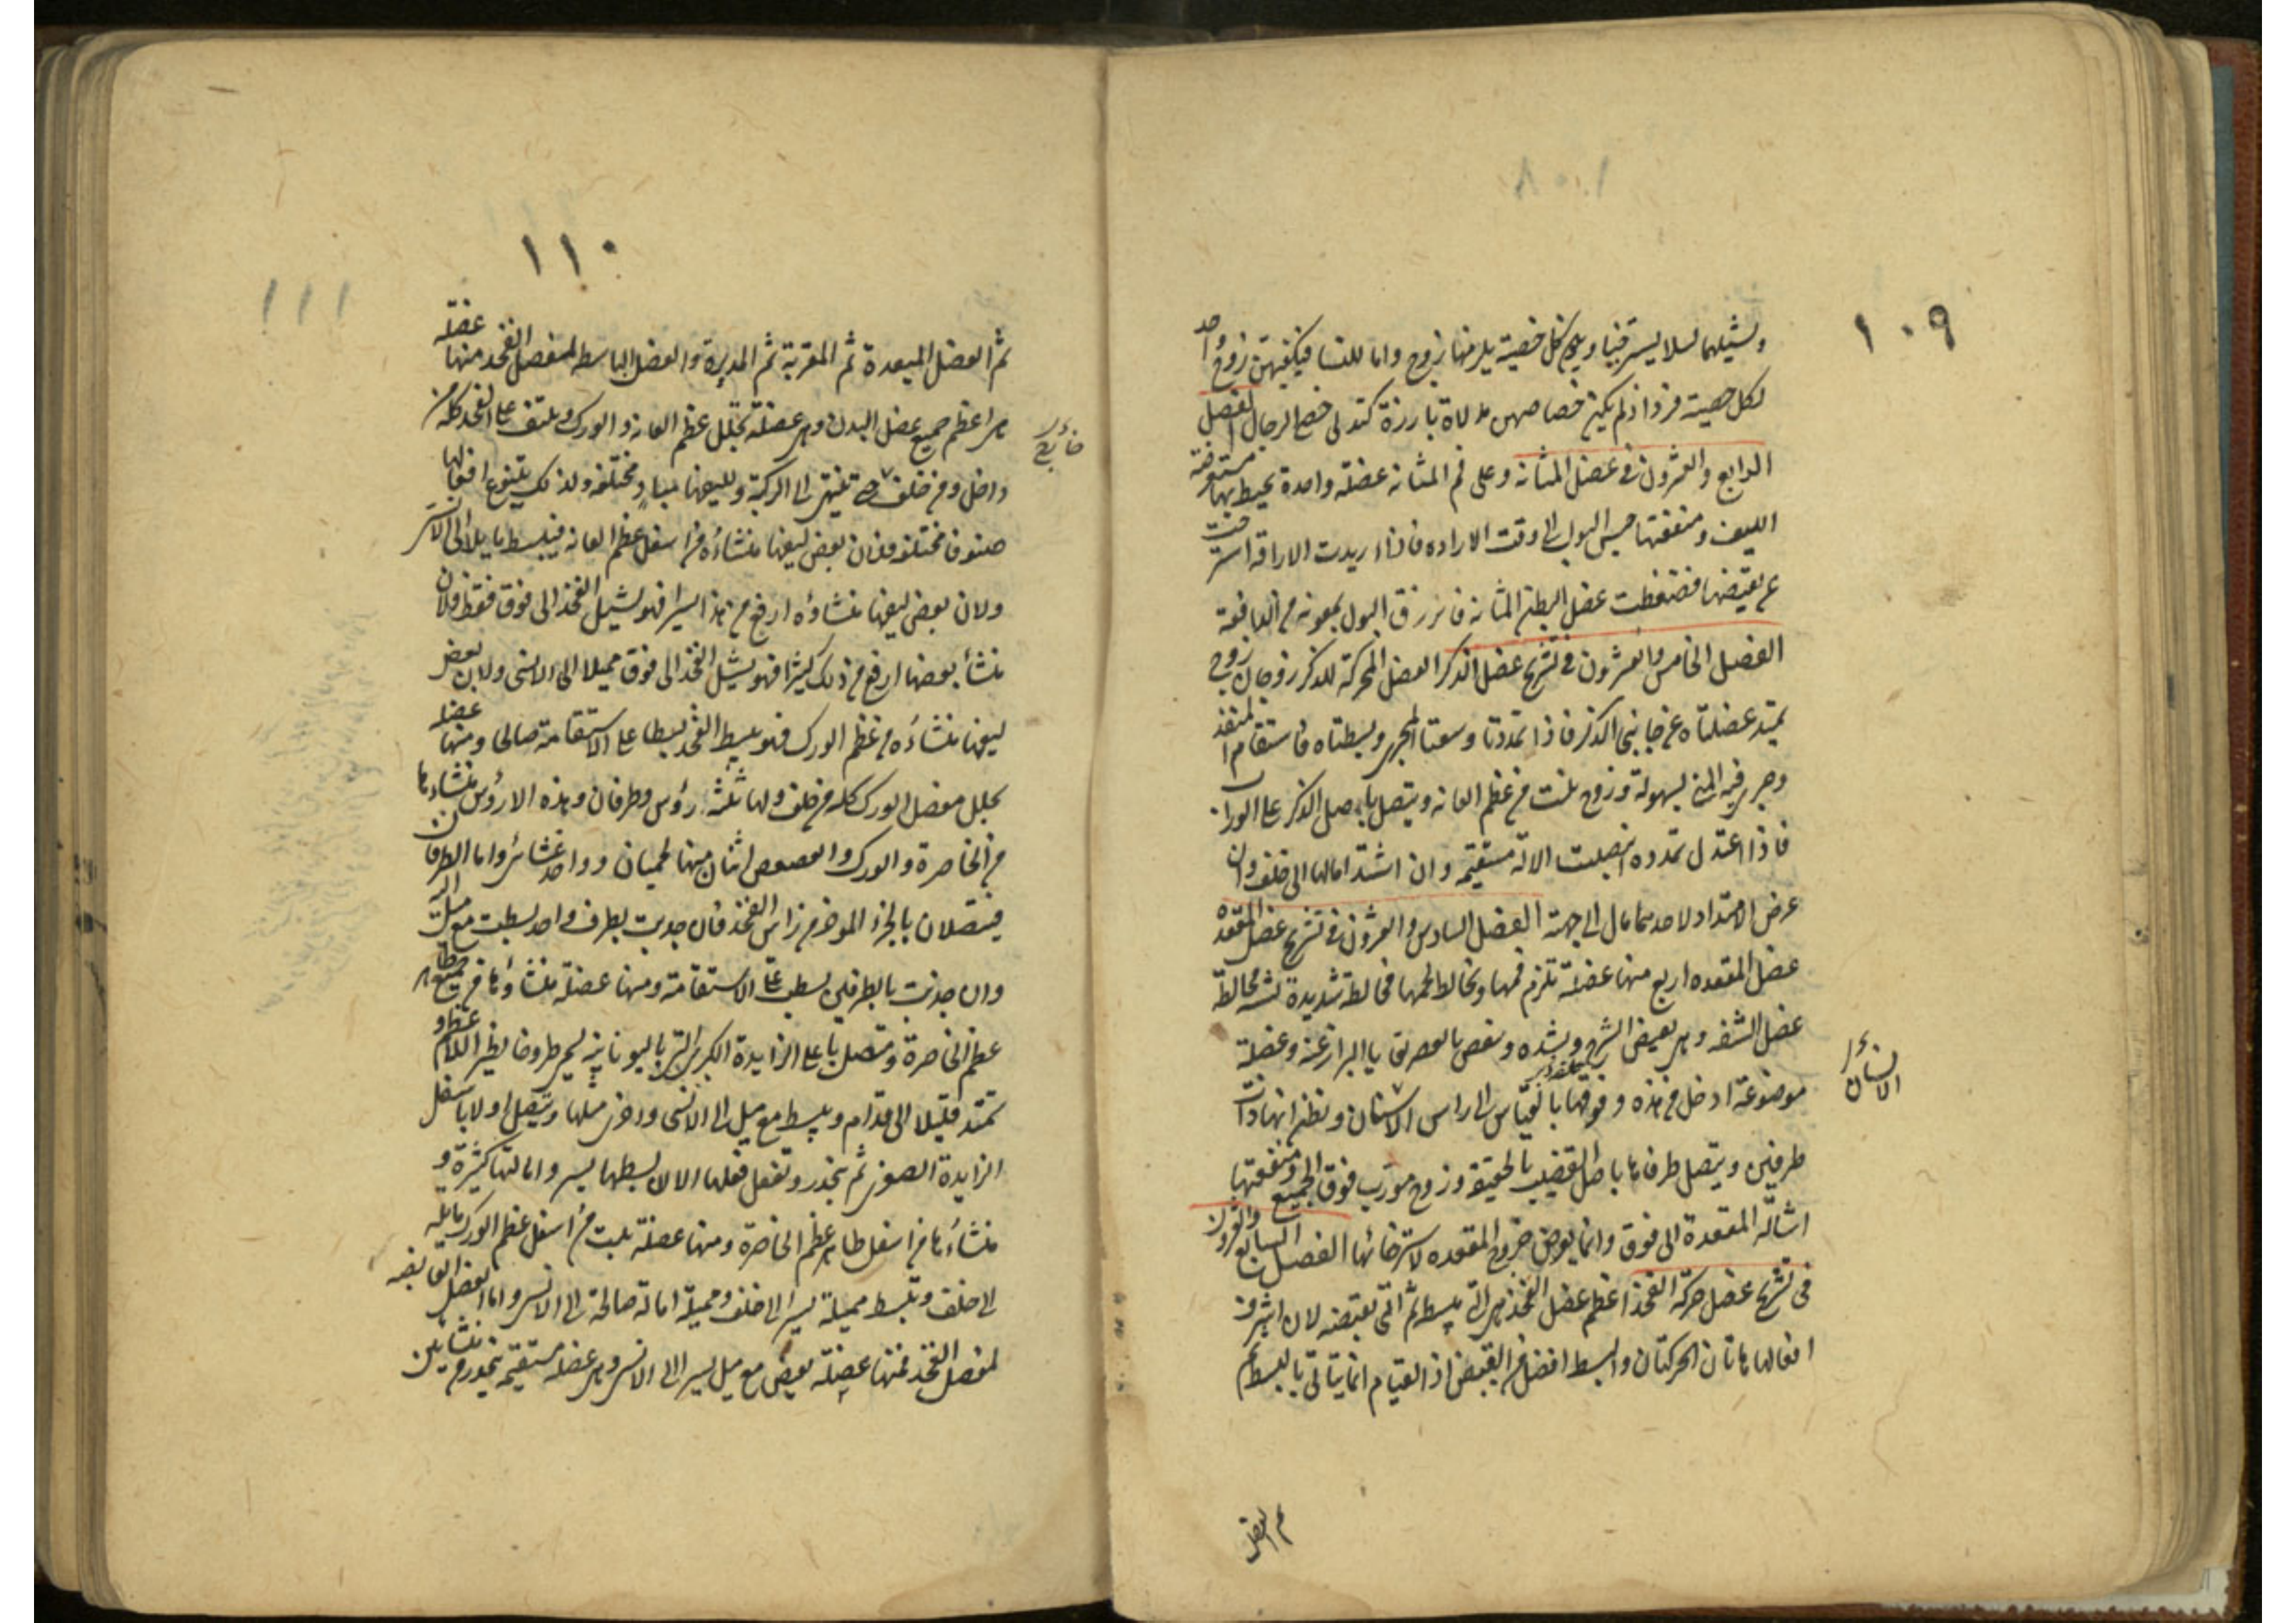 ١٠٩
وتشيلهما لئلا يسترخيا ويلى كل خصية يلزمها زوج واما للنساء فيكفيهن زوج واحد
لكل خصية فرد اذ لم يكن خصاصهن مدلاة بارزة كتدلى خصى الرجال الفصل
الرابع والعشرون فى عضل المثانه وعلى فم المثانه عضلة واحدة يحيط بها مستعرضة
الليف ومنفعتها حبس البول الى وقت الاراده فاذا اريدت الاراقة استرخت
عن تقبضها فضغطت عضل البطن المثانه فانزرق البول بمعونة من الدافعة
الفصل الخامس والعشرون فى تشريح عضل الذكر العضل المحركة للذكر زوجان زوج
يمتد عضلتاه عن جانبى الذكر فاذا تمددتا وسعتا المجرى وبسطتاه فاستقام المنفذ
وجرى فيه المنى بسهولة وزوج ينبت من عظم العانه ويتصل باصل الذكر على الوراب
فاذا اعتدل تمدده انتصبت الالة مستقيمه وان اشتد امالها الى خلف وان
عرض الامتداد لاحدهما مال الى جهته الفصل السادس والعشرون فى تشريح عضل المقعده
عضل المقعده اربع منها عضلة تلزم فمها وتخالط لحمها مخالطة شديدة شبه مخالطة
عضل الشفه وهى تقبض الشرج وتشده وتنفض بالعصر بقايا البراز عنه وعضلة
موضوعة ادخل من هذه وفوقها بالقياس الى راس الانسان وتظن انها ذات
الانسان
طرفين ويتصل طرفاها باصل القضيب بالحقيقه وزوج مورب فوق الجميع ومنفعتها
اشالة المقعدة الى فوق وانما يعرض خروج المقعده لاسترخائها الفصل السابع والعشرون
فى تشريح عضل حركة الفخذ اعظم عضل الفخذ هى التى تبسط ثم التى تقبضه لان اشرف
افعالها هاتان الحركتان والبسط افضل من القبض اذ القيام انما يتاتى بالبسط ثم
ثم العضل
١١٠
ثم العضل المبعدة ثم المقربة ثم المديرة والعضل الباسطة لمفصل الفخذ منها عضلة
هى اعظم جميع عضل البدن وهى عضلة تجلل عظم العانه والورك وتلتف على الفخذ كله من
داخل ومن خلف حتى تنتهى الى الركبة ولليفها مباد مختلفه ولذلك يتنوع افعالها
صنوفا مختلفه فلان بعض ليفها منشاؤه من اسفل عظم العانه فيبسط مايلا الى الانسى
ولان بعض ليفها منشاؤه ارفع من هذا يسيرا فهو يشيل الفخذ الى فوق فقط ولان
منشأ بعضها ارفع من ذلك كثيرا فهو يشيل الفخذ الى فوق مميلا الى الانسى ولان بعض
ليفها منشاؤه من عظم الورك فهو يبسط الفخذ بسطا على الاستقامة صالحا ومنها عضلة
تجلل مفصل الورك كله من خلف ولها ثلثة رؤس وطرفان وهذه الارؤس منشاءها
من الخاصرة والورك والعصعص اثنان منها لحميان وواحد غشائى واما الطرفان
فيتصلان بالجزء الموخر من راس الفخذ فان جذبت بطرف واحد بسطت مع ميل اليه
وان جذبت بالطرفين بسطت على الاستقامة ومنها عضلة منشاؤها من جميع ظاهر
عظم الخاصرة وتتصل باعلى الزايدة الكبرى التى باليونانيه تسمى طروخا نطير الاعظم و
تمتد قليلا الى قدام ويبسط مع ميل الى الانسى واخرى مثلها ويتصل اولا باسفل
الزايدة الصغرى ثم ينحدر وتفعل فعلها الا ان بسطها يسير وامالتها كثيرة و
منشاءها من اسفل ظاهر عظم الخاصرة ومنها عضلة ينبت من اسفل عظم الورك مايله
الى خلف وتبسط مميلة يسيرا الى خلف ومميلة امالة صالحة الى الانسى واما العضل القابضه
لمفصل الفخذ فمنها عضلة تقبض مع ميل يسير الى الانسى وهى عضلة مستقيمه تنحدر من منشاءين
١١١